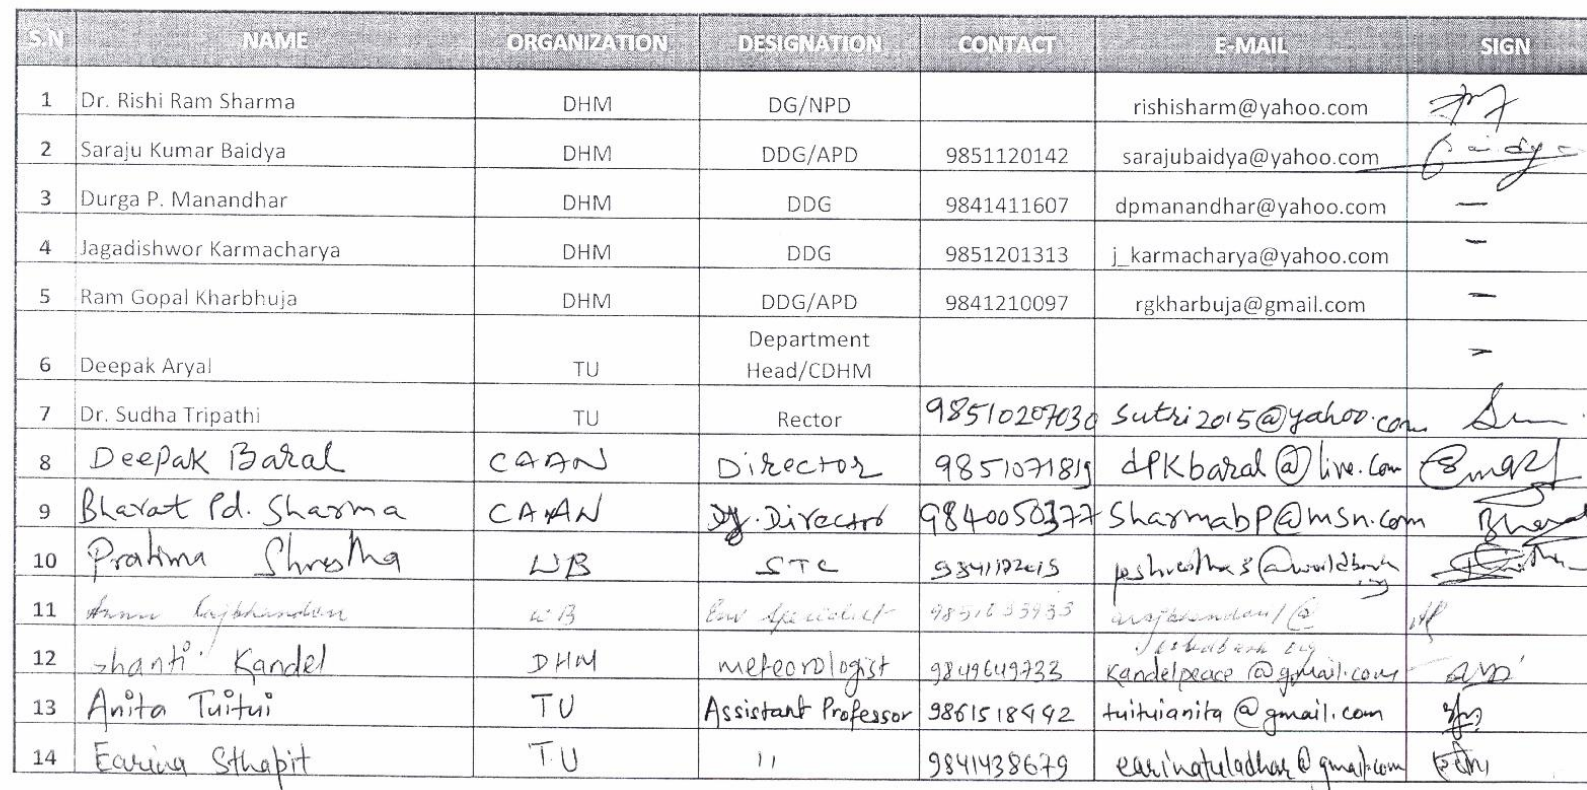 S.N NAME ORGANIZATION DESIGNATION CONTACT E-MAIL SIGN
1 Dr. Rishi Ram Sharma DHM DG/NPD rishisharm@yahoo.com
2 Saraju Kumar Baidya DHM DDG/APD 9851120142 sarajubaidya@yahoo.com Baidya
3 Durga P. Manandhar DHM DDG 9841411607 dpmanandhar@yahoo.com —
4 Jagadishwor Karmacharya DHM DDG 9851201313 j_karmacharya@yahoo.com —
5 Ram Gopal Kharbhuja DHM DDG/APD 9841210097 rgkharbuja@gmail.com —
Department
6 Deepak Aryal TU Head/CDHM
7 Dr. Sudha Tripathi TU Rector 98510207030 sutri2015@yahoo.com
8 Deepak Baral CAAN Director 9851071819 dpkbaral@live.com
9 Bharat Pd. Sharma CAAN Dy. Director 9840050377 Sharmabp@msn.com Bharat
10 Pratima Shrestha WB STC
11 WB Env Specialist
12 Shanti Kandel DHM meteorologist 9849649733 Kandelpeace@gmail.com
13 Anita Tuitui TU Assistant Professor 9861518442 tuituianita@gmail.com
14 Earina Sthapit T.U 11 9841438679 earinatuladhar@gmail.com